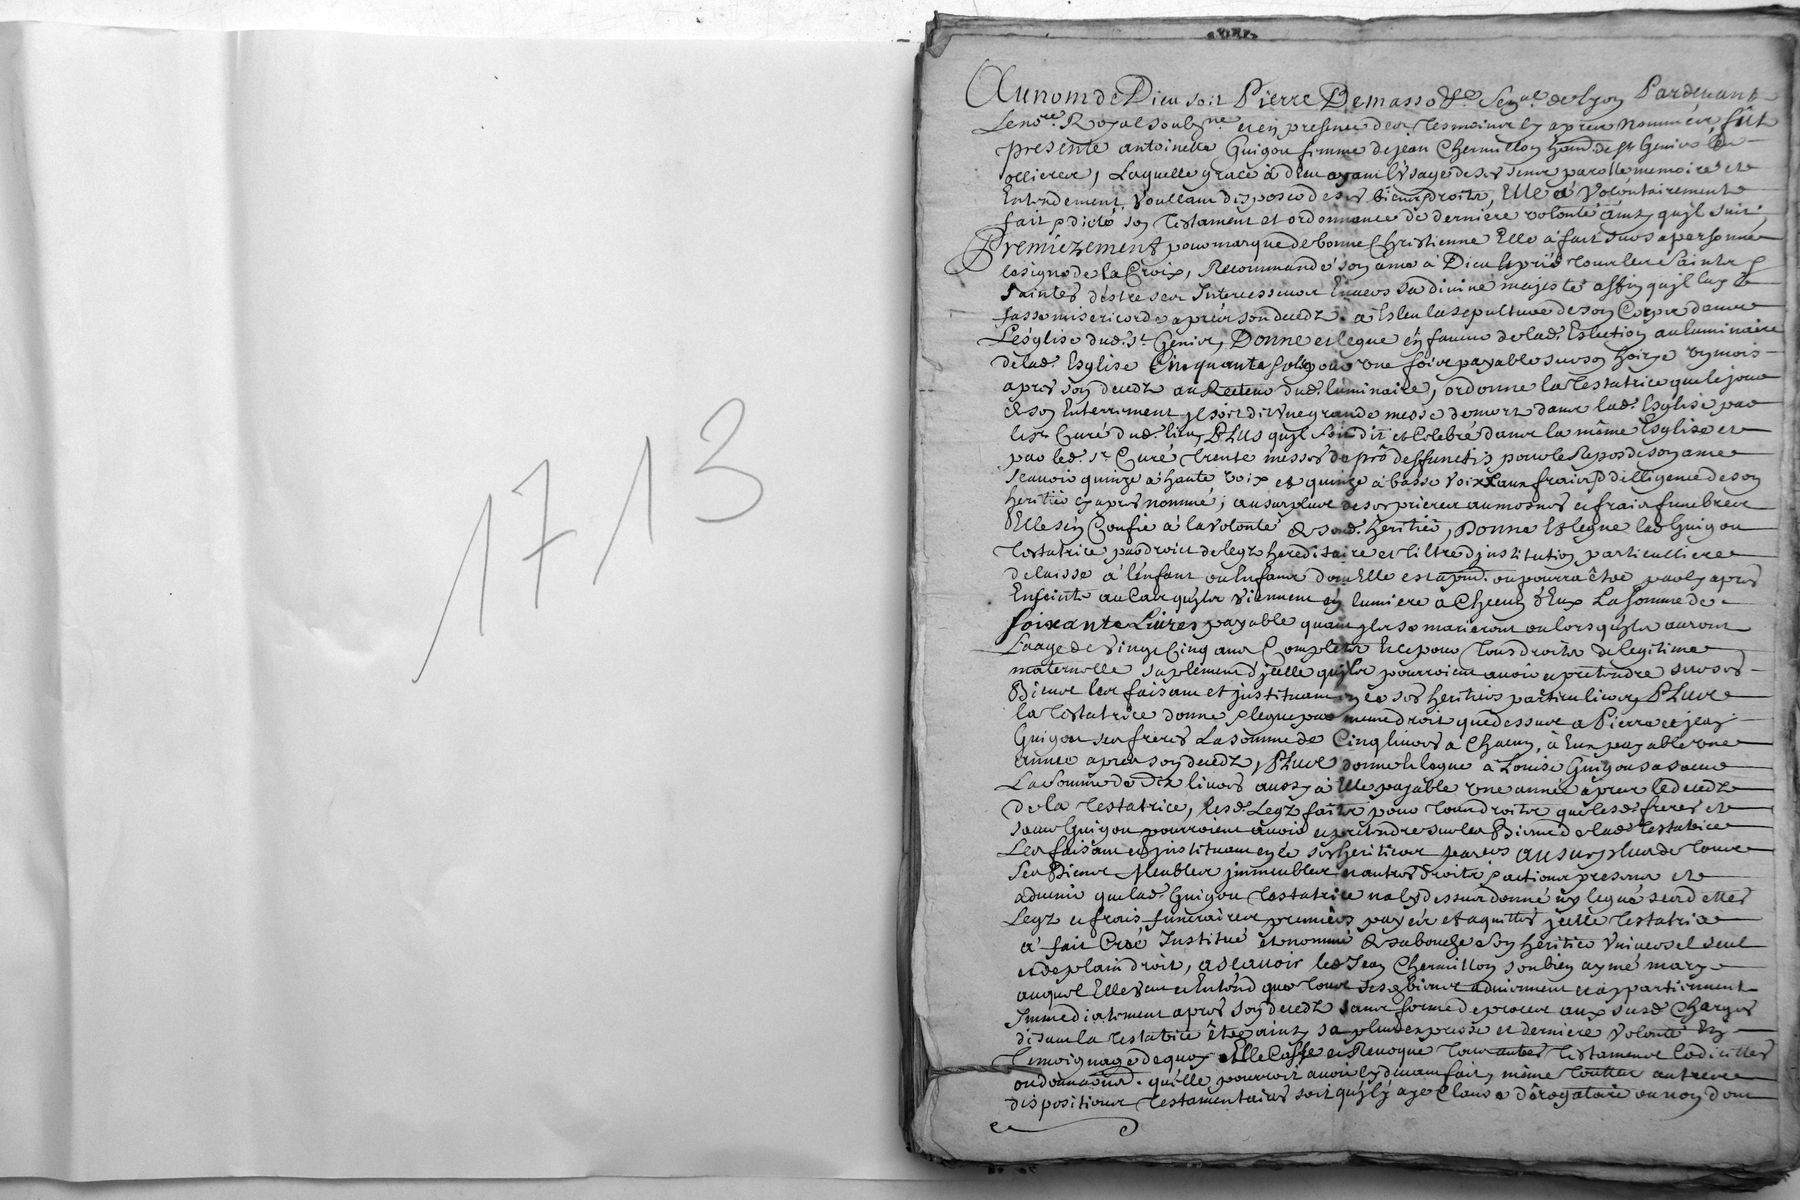 1713
Au nom de Dieu soit Pierre Demasso Sen.al de Lyon Pardevant
Le no.re Royal soubz.ne et en presence des tesmoins cy apres nommés, fût
presente antoinette Guigou femme de jean Chermillon hând. de St Genis les
ollieres, Laquelle grace à Dieu ayant l'usage de ses sens parolle memoire et
Entendement, voullant disposer de ses biens & droits, Elle a volontairement
fait & dicté son testament et ordonnance de derniere volonté ainsy qu'jl suit,
Premierement pour marque de bonne Christienne Elle à fait sur sa personne
le signe de la Croix, Recommandé son ame à Dieu & prié tous les saints &
saintes d'estre ses Intercesseurs Envers sa divine majesté affin qu'jl luy
fasse misericorde apres son decedz. a Esleu la sepulture de son Corps dans
L'Esglise dud. St Genis, Donne et legue en faveur de lad. Eslection au luminaire
de lad. Esglise Cinquante sols pour une fois payables par son hoirye un mois
apres son decedz au Recteur dud. luminaire, ordonne la testatrice que le jour
de son Enterrement jl soit dit une grande messe de mort dans lad. Esglise par
le sr Curé dud. lieu, PLUS qu'jl soit dit et Celebré dans la même Esglise et
par led. sr Curé trente messes de pro deffunctis pour le Repos de son ame
scavoir quinze à haute voix et quinze à basse voix aux frais & dilligence de son
heritier cy apres nommé, au surplus de ses prieres aumosnes et frais funebres
Elle s'en Confie à la volonté de sond. heritier, Donne Et legue lad. Guigou
testatrice par droit de legz hereditaire et tiltre d'jnstitution particulliere
delaisse à l'enfant ou Enfans dont Elle est apnt. ou pourra être par cy apres
Enceinte au Cas qu'jls viennent en lumiere à Chacun d'Eux La somme de
soixante Livres payable quand jls se marieront ou lors qu'jls auront
L'aage de vingt Cinq ans Completz Et ce pour tous droits de legitime
maternelle suplement d'jcelle qu'jls pourroient avoir et pretendre sur ses
Biens les faisant et jnstituant en ce ses heritiers particuliers, PLus
la testatrice donne & legue par meme droit que dessus a Pierre et jean
Guigou ses freres La somme de Cinq livres à Chacun, à Eux payable une
année apres son decedz, PLus donne et legue à Louise Guigou sa soeur
La somme de Dix livres aussy à Elle payable une année apres le decedz
de la testatrice, lesd. Legz faits pour tous droits que lesd. freres et
soeur Guigou pourroient avoir et pretendre sur les Biens de lad. testatrice
Les faisant et jnstituant en ce ses heritiers au surplus de tous
ses Biens Meubles jmmeubles et autres droits & actions presens et
advenir que lad. Guigou testatrice na cy dessus donné ny legué ses dettes
Legz et frais funeraires premiers payés et aquittés jcelle testatrice
à fait Creé Institué et nommé de sa bouche son heritier Universel seul
et de plain droit, a scavoir led. Jean Chermillon son bien aymé mary
auquel Elle veut et Entend que tous sesd. biens adviennent et appartiennent
Immediatement apres son decedz sans forme de proces aux susd. Charges
disant la testatrice être ainsy sa plus expresse et derniere volonté En
temoignage de quoy Elle Casse et Revoque tous autres testaments Codicilles
ou donations qu'elle pourroit avoir cy devant fait, même touttes autres
dispositions testamentaires soit qu'jl y aye Clause dérogatoire ou non dont